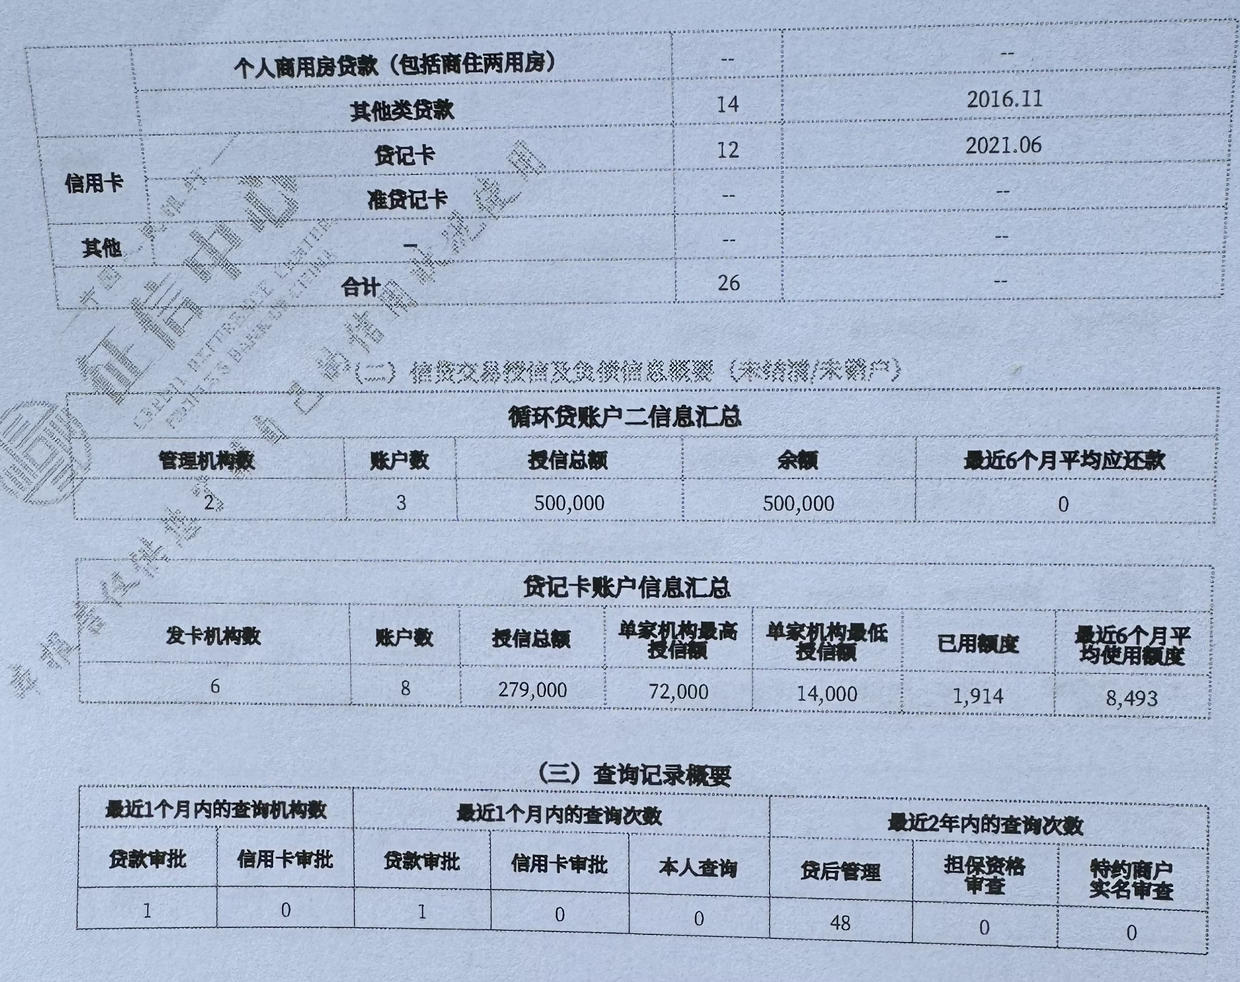 个人商用房贷款（包括商住两用房） -- --
其他类贷款 14 2016.11
信用卡 贷记卡 12 2021.06
准贷记卡 -- --
其他 — -- --
合计 26 --
（二）信贷交易授信及负债信息概要（未结清/未销户）
循环贷账户二信息汇总
管理机构数 账户数 授信总额 余额 最近6个月平均应还款
2 3 500,000 500,000 0
贷记卡账户信息汇总
发卡机构数 账户数 授信总额 单家机构最高授信额 单家机构最低授信额 已用额度 最近6个月平均使用额度
6 8 279,000 72,000 14,000 1,914 8,493
（三）查询记录概要
最近1个月内的查询机构数 最近1个月内的查询次数 最近2年内的查询次数
贷款审批 信用卡审批 贷款审批 信用卡审批 本人查询 贷后管理 担保资格审查 特约商户实名审查
1 0 1 0 0 48 0 0
征信中心
CREDIT REFERENCE CENTER
PEOPLE'S BANK OF CHINA